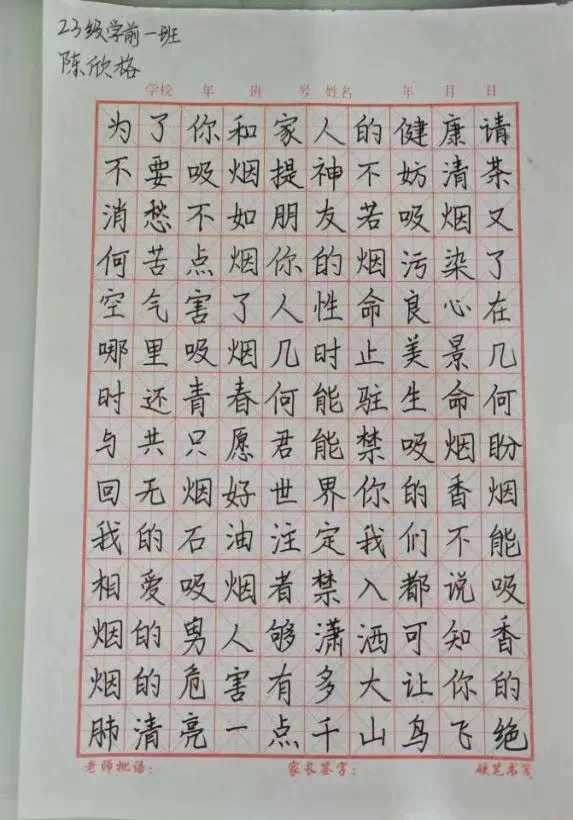 23级学前一班
陈欣格
学校 年 班 号 姓名 年 月 日
为了你和家人的健康请
不要吸烟提神不妨清茶
消愁不如朋友若吸烟又
何苦点烟你的烟污染了
空气害了人性命良心在
哪里吸烟几时止美景几
时还青春何能驻生命几何
与共只愿君能禁吸烟盼
回无烟好世界你的香烟
我的石油注定我们不能
相爱吸烟者禁入都说吸
烟的男人够潇洒可知香
烟的危害有多大让你的
肺清亮一点千山鸟飞绝
老师批语： 家长签字： 硬笔书笺